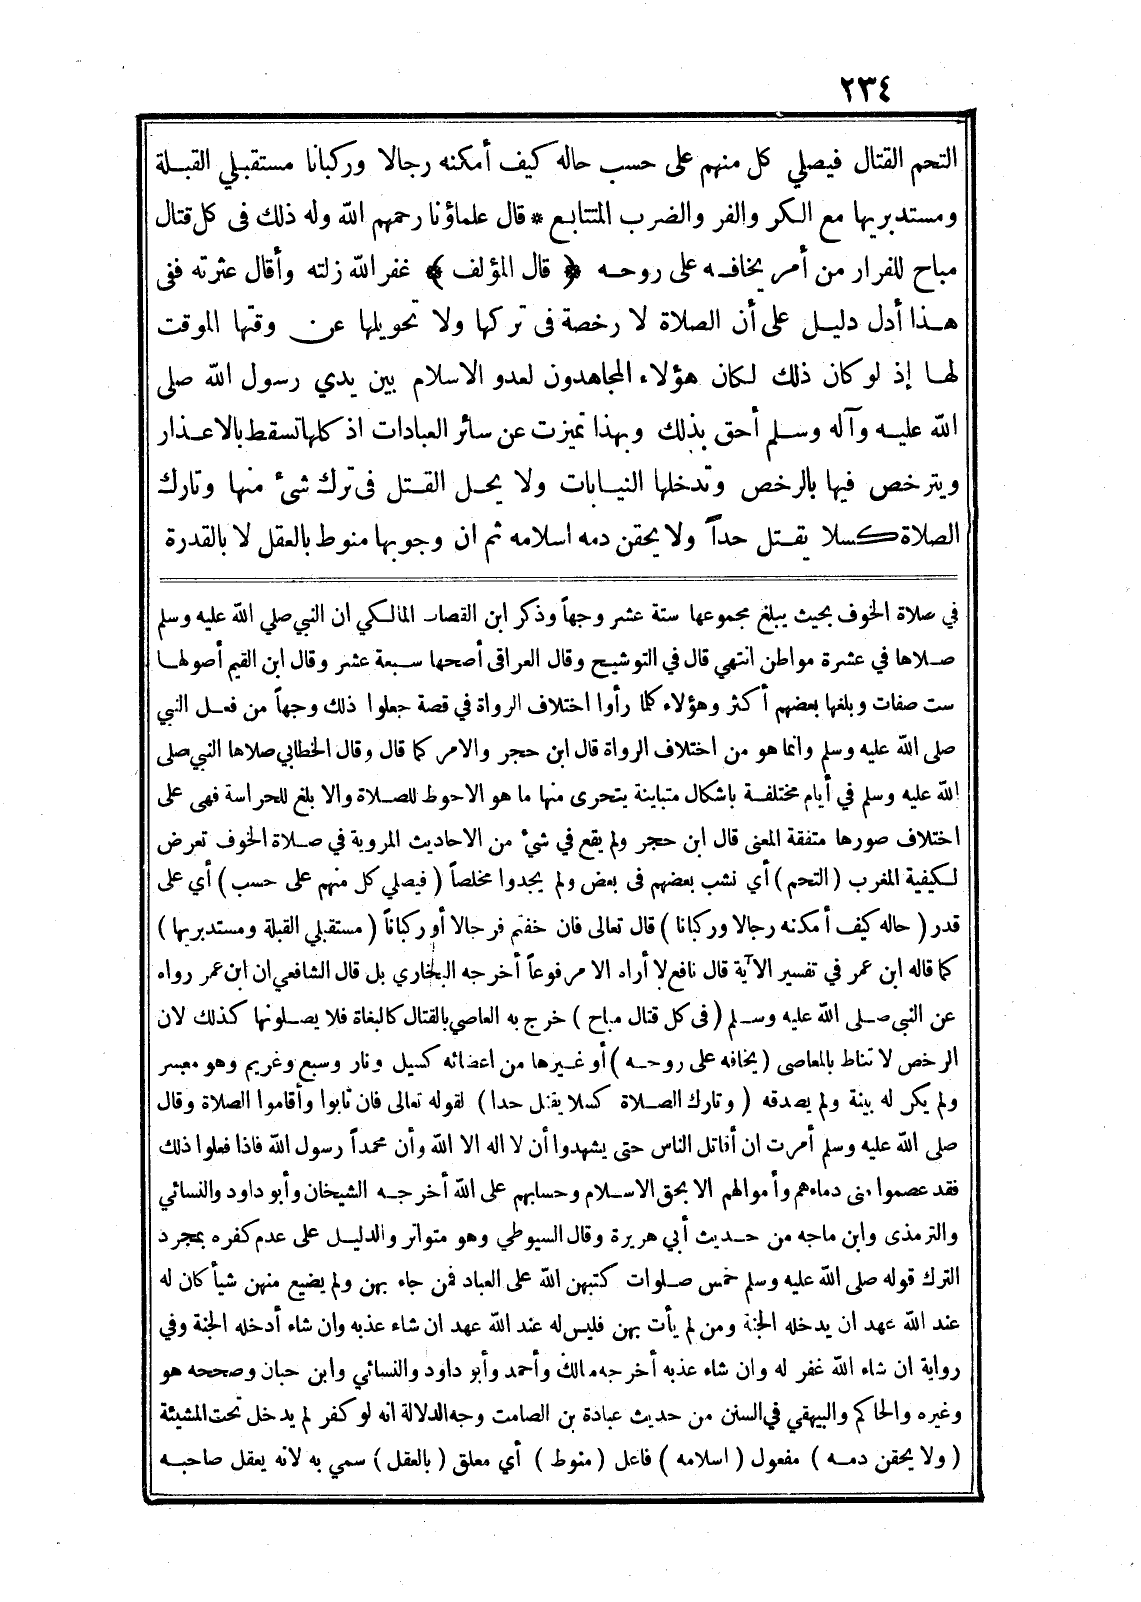 ٢٣٤
التحم القتال فيصلي كل منهم على حسب حاله كيف أمكنه رجالا وركبانا مستقبلي القبلة
ومستدبريها مع الكر والفر والضرب المتتابع * قال علماؤنا رحمهم الله وله ذلك فى كل قتال
مباح للفرار من أمر يخافه على روحه ﴿ قال المؤلف ﴾ غفر الله زلته وأقال عثرته ففى
هذا أدل دليل على أن الصلاة لا رخصة فى تركها ولا تحويلها عن وقتها الموقت
لها إذ لو كان ذلك لكان هؤلاء المجاهدون لعدو الاسلام بين يدي رسول الله صلى
الله عليه وآله وسلم أحق بذلك وبهذا تميزت عن سائر العبادات اذ كلها تسقط بالاعذار
ويترخص فيها بالرخص وتدخلها النيابات ولا يحل القتل فى ترك شئ منها وتارك
الصلاة كسلا يقتل حداً ولا يحقن دمه اسلامه ثم ان وجوبها منوط بالعقل لا بالقدرة
في صلاة الخوف بحيث يبلغ مجموعها ستة عشر وجهاً وذكر ابن القصار المالكي ان النبي صلى الله عليه وسلم
صلاها في عشرة مواطن انتهي قال في التوشيح وقال العراقى أصحها سبعة عشر وقال ابن القيم أصولها
ست صفات وبلغها بعضهم أكثر وهؤلاء كلما رأوا اختلاف الرواة في قصة جعلوا ذلك وجهاً من فعل النبي
صلى الله عليه وسلم وانما هو من اختلاف الرواة قال ابن حجر والامر كما قال وقال الخطابي صلاها النبي صلى
الله عليه وسلم في أيام مختلفة باشكال متباينة يتحرى منها ما هو الاحوط للصلاة والا بلغ للحراسة فهى على
اختلاف صورها متفقة المعنى قال ابن حجر ولم يقع في شئ من الاحاديث المروية في صلاة الخوف تعرض
لكيفية المغرب ( التحم ) أي نشب بعضهم فى بعض ولم يجدوا مخلصاً ( فيصلي كل منهم على حسب ) أي على
قدر ( حاله كيف أمكنه رجالا وركبانا ) قال تعالى فان خفتم فرجالا أو ركباناً ( مستقبلي القبلة ومستدبريها )
كما قاله ابن عمر في تفسير الآية قال نافع لا أراه الا مرفوعاً أخرجه البخاري بل قال الشافعي ان ابن عمر رواه
عن النبي صلى الله عليه وسلم ( فى كل قتال مباح ) خرج به العاصي بالقتال كالبغاة فلا يصلونها كذلك لان
الرخص لا تناط بالمعاصى ( يخافه على روحه ) أو غيرها من اعضائه كسيل ونار وسبع وغريم وهو معسر
ولم يكن له بينة ولم يصدقه ( وتارك الصلاة كسلا يقتل حدا ) لقوله تعالى فان تابوا وأقاموا الصلاة وقال
صلى الله عليه وسلم أمرت ان أقاتل الناس حتى يشهدوا أن لا اله الا الله وأن محمداً رسول الله فاذا فعلوا ذلك
فقد عصموا منى دماءهم وأموالهم الا بحق الاسلام وحسابهم على الله أخرجه الشيخان وأبو داود والنسائي
والترمذى وابن ماجه من حديث أبي هريرة وقال السيوطي وهو متواتر والدليل على عدم كفره بمجرد
الترك قوله صلى الله عليه وسلم خمس صلوات كتبهن الله على العباد فمن جاء بهن ولم يضيع منهن شيأ كان له
عند الله عهد ان يدخله الجنة ومن لم يأت بهن فليس له عند الله عهد ان شاء عذبه وان شاء أدخله الجنة وفي
رواية ان شاء الله غفر له وان شاء عذبه أخرجه مالك وأحمد وأبو داود والنسائي وابن حبان وصححه هو
وغيره والحاكم والبيهقي في السنن من حديث عبادة بن الصامت وجه الدلالة انه لو كفر لم يدخل تحت المشيئة
( ولا يحقن دمه ) مفعول ( اسلامه ) فاعل ( منوط ) أي معلق ( بالعقل ) سمي به لانه يعقل صاحبه